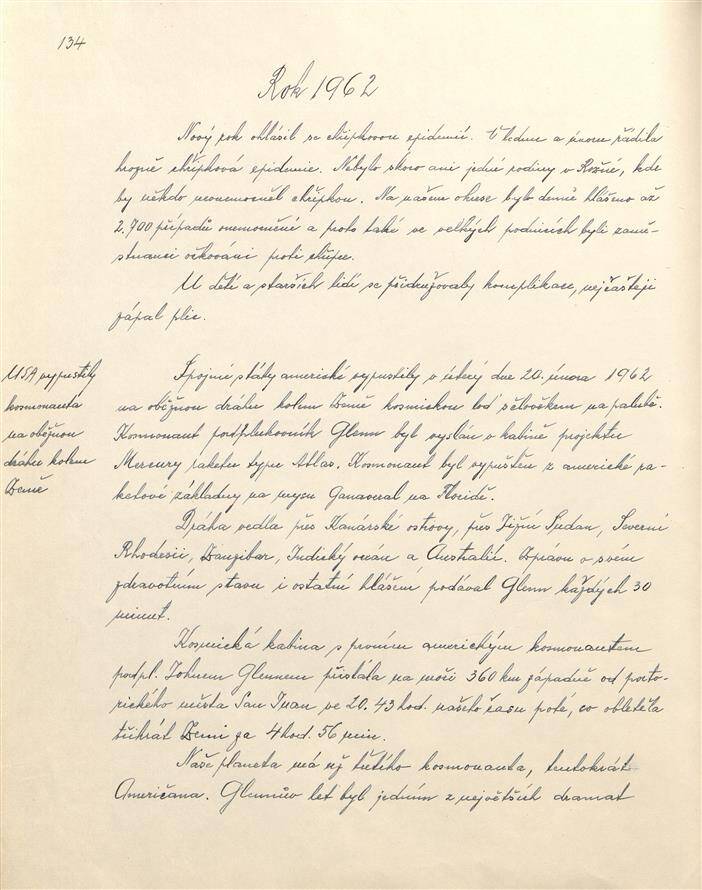 134
Rok 1962
Nový rok ohlásil se chřipkovou epidemií. V lednu a únoru řádila
hrozně chřipková epidemie. Nebylo skoro ani jedné rodiny v Rožné, kde
by někdo neonemocněl chřipkou. Na našem okrese bylo denně hlášeno až
2.700 případů onemocnění a proto také ve velkých podnicích byli zamě-
stnanci očkováni proti chřipce.
U dětí a starších lidí se přidružovaly komplikace, nejčastěji
zápal plic.
USA vypustily
kosmonauta
na oběžnou
dráhu kolem
Země
Spojené státy americké vypustily v úterý dne 20. února 1962
na oběžnou dráhu kolem Země kosmickou loď s člověkem na palubě.
Kosmonaut podplukovník Glenn byl vyslán v kabině projektu
Mercury raketou typu Atlas. Kosmonaut byl vypuštěn z americké ra-
ketové základny na mysu Canaveral na Floridě.
Dráha vedla přes Kanárské ostrovy, přes Jižní Sudan, Severní
Rhodesii, Zanzibar, Indický oceán a Australii. Zprávu o svém
zdravotním stavu i ostatní hlášení podával Glenn každých 30
minut.
Kosmická kabina s prvním americkým kosmonautem
podpl. Johnem Glennem přistála na moři 360 km západně od porto-
rického města San Juan ve 20.43 hod. našeho času poté, co obletěla
třikrát Zemi za 4 hod. 56 min.
Naše planeta má už třetího kosmonauta, tentokrát
Američana. Glennův let byl jedním z největších dramat